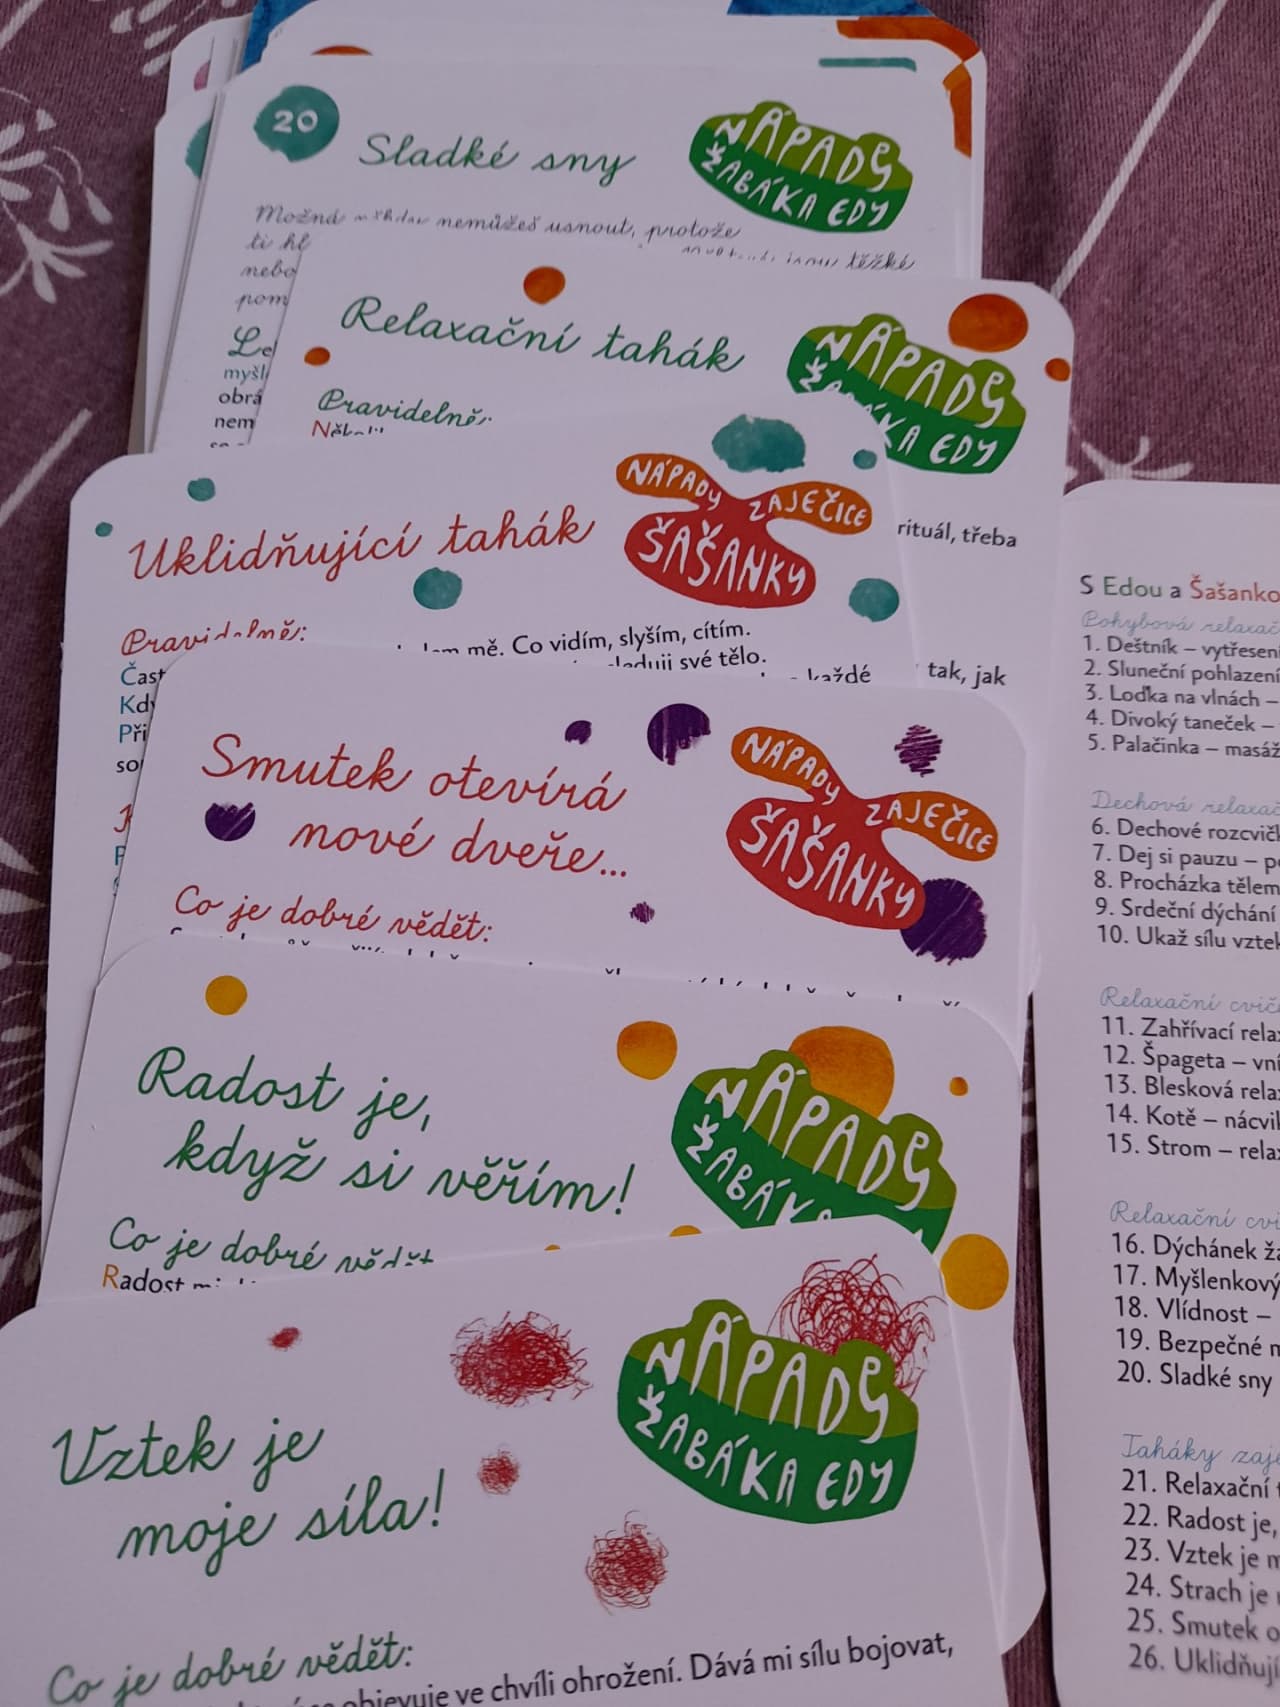 20
Sladké sny
NÁPADY
ŽABÁKA EDY
Možná nemůžeš usnout, protože
ti
těžké
nebo
Relaxační tahák
NÁPADY
KA EDY
Pravidelně:
rituál, třeba
tak, jak
Uklidňující tahák
NÁPADY ZAJEČICE
ŠAŠANKY
Pravidelně:
mě. Co vidím, slyším, cítím.
své tělo.
každé
Smutek otevírá
nové dveře...
NÁPADY ZAJEČICE
ŠAŠANKY
Co je dobré vědět:
Radost je,
když si věřím!
NÁPADY
Co je dobré vědět
Radost
Vztek je
moje síla!
NÁPADY
ŽABÁKA EDY
Co je dobré vědět:
objevuje ve chvíli ohrožení. Dává mi sílu bojovat,
S Edou a Šašanko
Pohybová relaxač
1. Deštník – vytřesení
2. Sluneční pohlazení
3. Loďka na vlnách –
4. Divoký taneček –
5. Palačinka – masáž
Dechová relaxač
6. Dechové rozcvič
7. Dej si pauzu –
8. Procházka tělem
9. Srdeční dýchání
10. Ukaž sílu vztek
Relaxační cvič
11. Zahřívací relax
12. Špageta – vní
13. Blesková relax
14. Kotě – nácvik
15. Strom – relax
Relaxační cvi
16. Dýchánek ža
17. Myšlenkový
18. Vlídnost –
19. Bezpečné m
20. Sladké sny
Taháky zaje
21. Relaxační t
22. Radost je,
23. Vztek je m
24. Strach je
25. Smutek o
26. Uklidňují